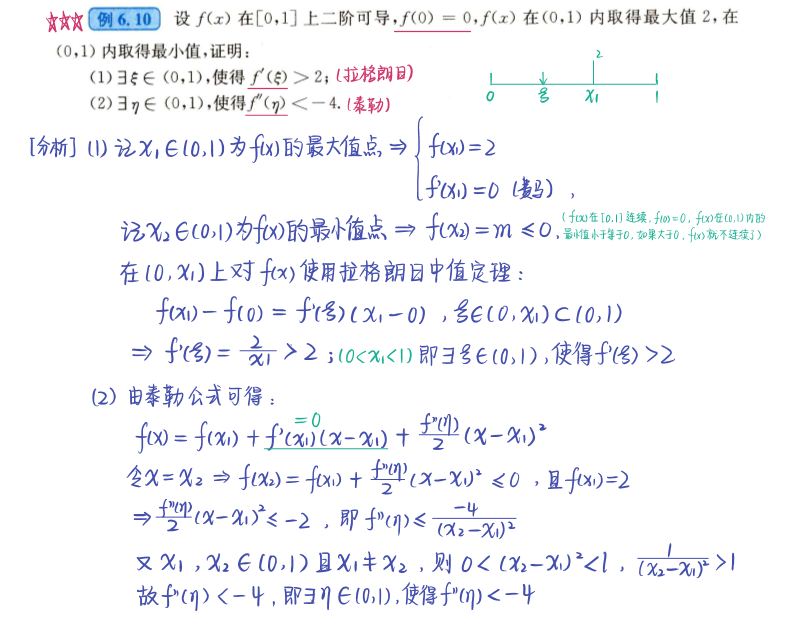 ☆☆☆ 例 6.10 设 f(x) 在[0,1]上二阶可导,f(0) = 0,f(x) 在(0,1) 内取得最大值 2,在
(0,1) 内取得最小值,证明:
(1) ∃ξ∈(0,1),使得 f′(ξ) > 2; (拉格朗日)
(2) ∃η∈(0,1),使得 f″(η) < −4. (泰勒)
2
0 ξ x₁ 1
[分析] (1) 记 x₁∈(0,1) 为 f(x) 的最大值点 ⇒ { f(x₁)=2
f′(x₁)=0 (费马) ,
记 x₂∈(0,1) 为 f(x) 的最小值点 ⇒ f(x₂)=m ≤ 0,
(f(x)在[0,1]连续, f(0)=0, f(x)在(0,1)内的
最小值小于等于0, 如果大于0, f(x)就不连续了)
在 (0,x₁) 上对 f(x) 使用拉格朗日中值定理:
f(x₁) − f(0) = f′(ξ)(x₁−0) , ξ∈(0,x₁)⊂(0,1)
⇒ f′(ξ) = 2/x₁ > 2 ; (0<x₁<1) 即∃ξ∈(0,1), 使得f′(ξ)>2
(2) 由泰勒公式可得:
=0
f(x) = f(x₁) + f′(x₁)(x−x₁) + f″(η)/2 (x−x₁)²
令x=x₂ ⇒ f(x₂) = f(x₁) + f″(η)/2 (x−x₁)² ≤ 0 , 且f(x₁)=2
⇒ f″(η)/2 (x−x₁)² ≤ −2 , 即 f″(η) ≤ −4/(x₂−x₁)²
又 x₁ , x₂∈(0,1) 且 x₁≠x₂ , 则 0<(x₂−x₁)²<1 , 1/(x₂−x₁)² >1
故f″(η) < −4 , 即∃η∈(0,1), 使得f″(η)<−4